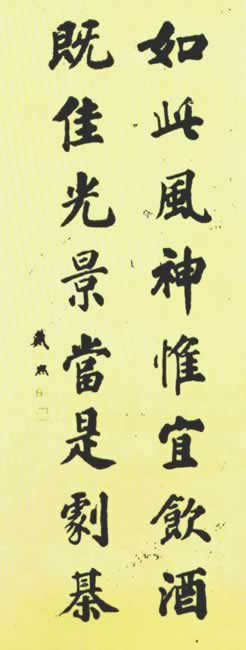 如此風神惟宜飲酒
既佳光景當是劇棊
戴熙